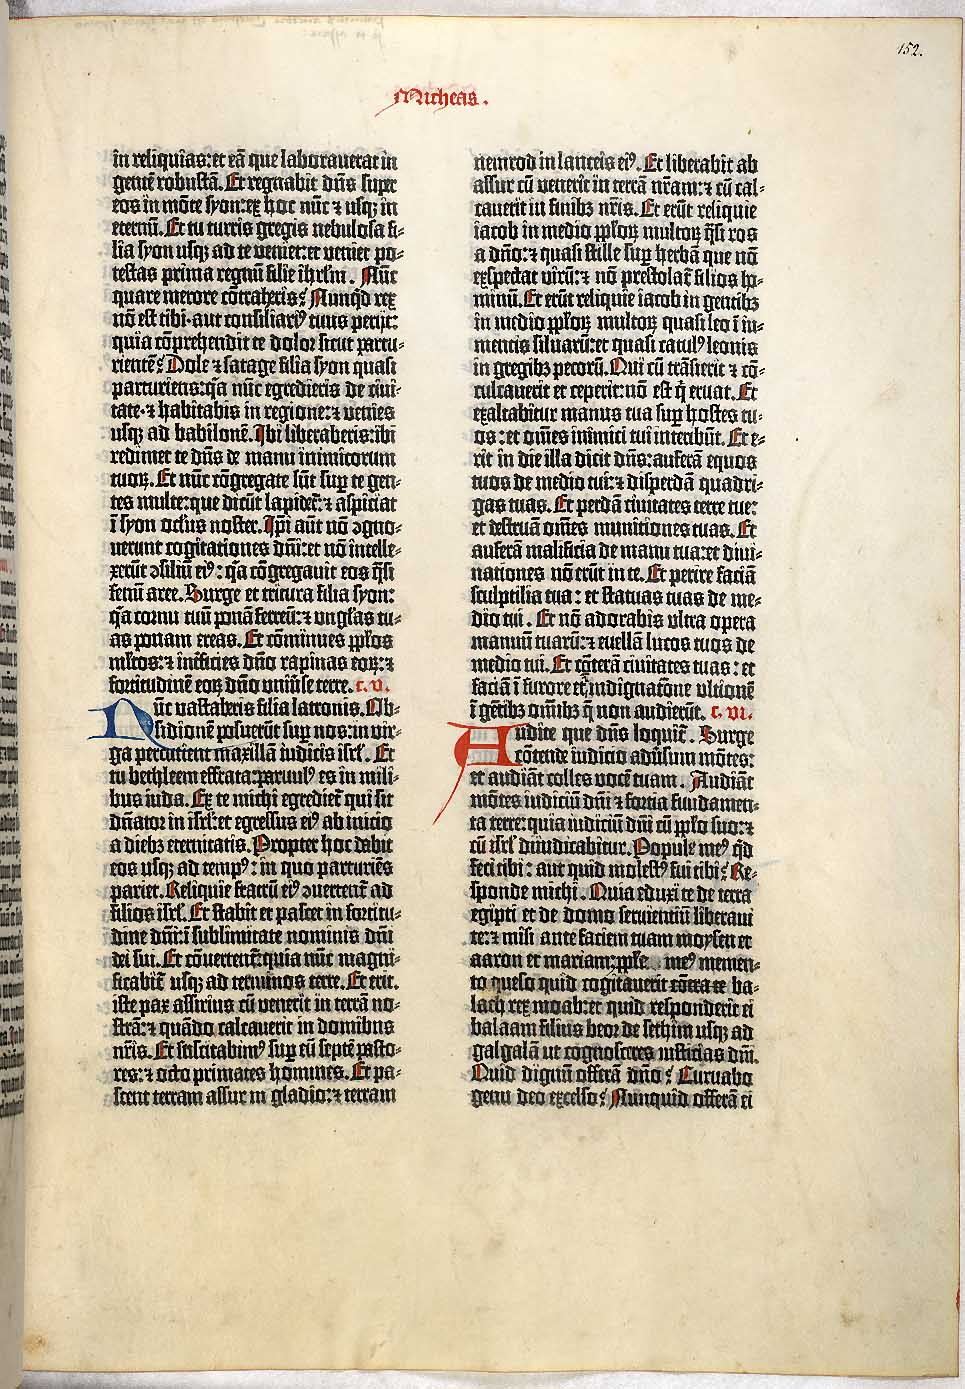 152.
Micheas.
in reliquias: et eā que laborauerat in
gentē robustā. Et regnabit dn̄s super
eos in mōte syon: ex hoc nūc ⁊ usqꝫ in
eternū. Et tu turris gregis nebulosa fi-
lia syon usqꝫ ad te veniet: et veniet po-
testas prima regnū filie ihrl̄m. Nūc
quare merore cōtraheris? Nunq̄d rex
nō est tibi· aut consiliariꝰ tuus perijt:
quia cōprehendit te dolor sicut partu-
rientē? Dole ⁊ satage filia syon quasi
parturiens: q̄a nūc egredieris de ciui-
tate· ⁊ habitabis in regione: ⁊ venies
usqꝫ ad babilonē. Ibi liberaberis: ibi
redimet te dn̄s de manu inimicorum
tuoꝝ. Et nūc cōgregate sūt sup̄ te gen-
tes multe: que dicūt lapidet̄: ⁊ aspiciat
ī syon oculus noster. Ip̄i aūt nō ꝯgno-
uerunt cogitationes dn̄i: et nō intelle-
xerūt ꝯsiliū eiꝰ: q̄a cōgregauit eos q̄si
fenū aree. Surge et tritura filia syon:
q̄a cornu tuū ponā ferreū: ⁊ vngl̄as tu-
as ponam ereas. Et cōminues pp̄los
ml̄tos: ⁊ int̄ficies dn̄o rapinas eoꝝ: ⁊
fortitudinē eoꝝ dn̄o vniūse terre. c. v.
Nūc vastaberis filia latronis. Ob-
sidionē posuerūt sup̄ nos: in vir-
ga percutient maxillā iudicis isrl̄. Et
tu bethleem effrata: paruulꝰ es in mili-
bus iuda. Ex te michi egrediet̄ qui sit
dn̄ator in isrl̄: et egressus eiꝰ ab inicio
a diebꝫ eternitatis. Propter hoc dabit
eos usqꝫ ad tempꝰ: in quo parturiēs
pariet. Reliquie fratrū eiꝰ ꝯuertent̄ ad
filios isrl̄. Et stabit et pascet in fortitu-
dine dn̄i: ī sublimitate nominis dn̄i
dei sui. Et cōuertent̄: quia nūc magni-
ficabit̄ usqꝫ ad terminos terre. Et erit
iste pax assirius cū venerit in terrā no-
strā: ⁊ quādo calcauerit in domibus
nr̄is. Et suscitabimꝰ sup̄ eū septē pasto-
res: ⁊ octo primates homines. Et pa-
scent terram assur in gladio: ⁊ terram
nemrod in lanceis eiꝰ. Et liberabit ab
assur cū venerit in terrā nr̄am: ⁊ cū cal-
cauerit in finibꝫ nr̄is. Et erūt reliquie
iacob in medio pp̄loꝝ multoꝝ q̄si ros
a dn̄o: ⁊ quasi stille sup̄ herbā que nō
expectat virū: ⁊ nō prestolat̄ filios ho-
minū. Et erūt reliquie iacob in gentibꝫ
in medio pp̄loꝝ multoꝝ quasi leo ī iu-
mentis siluarū: et quasi catulꝰ leonis
in gregibꝫ pecorū. Qui cū trāsierit ⁊ cō-
culcauerit et ceperit: nō est q̄ eruat. Et
exaltabitur manus tua sup̄ hostes tu-
os: et om̄es inimici tui interibūt. Et e-
rit in die illa dicit dn̄s: auferā equos
tuos de medio tui: ⁊ disperdā quadri-
gas tuas. Et perdā ciuitates terre tue:
et destruā om̄es munitiones tuas. Et
auferā maleficia de manu tua: et diui-
nationes nō erūt in te. Et perire faciā
sculptilia tua: et statuas tuas de me-
dio tui. Et nō adorabis vltra opera
manuū tuarū: ⁊ euellā lucos tuos de
medio tui. Et cōterā ciuitates tuas: et
faciā ī furore et indignatōne vltionē
ī gētibꝫ om̄ibꝫ q̄ non audierūt. c. vi.
Audite que dn̄s loquit̄. Surge
cōtende iudicio aduersum mōtes:
et audiāt colles vocē tuam. Audiāt
mōtes iudiciū dn̄i ⁊ fortia fundamen-
ta terre: quia iudiciū dn̄i cū pp̄lo suo: ⁊
cū isrl̄ diiudicabitur. Popule meꝰ q̄d
feci tibi: aut quid molestꝰ fui tibi? Re-
sponde michi. Quia eduxi te de terra
egipti et de domo seruientiū liberaui
te: ⁊ misi ante faciem tuam moysen et
aaron et mariam: pp̄le meꝰ memen-
to queso quid cogitauerit cōtra te ba-
lach rex moab: et quid responderit ei
balaam filius beor de sethim usqꝫ ad
galgalā ut cognosceres iusticias dn̄i.
Quid dignū offerā dn̄o? Curuabo
genu deo excelso? Nunquid offerā ei